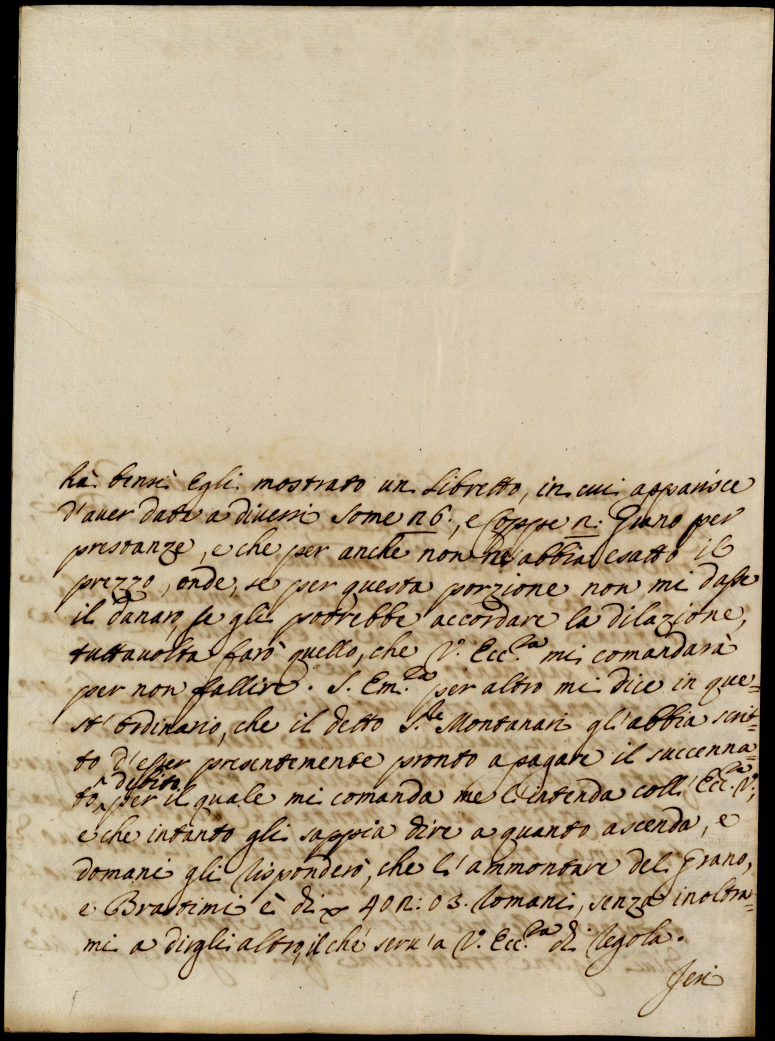 hà bensì Egli mostrato un Libretto, in cui apparisce
d'aver dati a diversi Some n6:, e Coppe n: Grano per
prestanze, e che per anche non ne abbia esatto il
prezzo, onde, se per questa porzione non mi dasse
il danaro se gli potrebbe accordare la dilazione,
tuttavolta farò quello, che V: Ecc:za mi comandarà
per non fallire. S. Em:za per altro mi dice in que=
st'ordinario, che il detto S:le Montanari gl'abbia scrit=
to d'esser presentemente pronto a pagare il succenna=
debito
to, per il quale mi comanda me l'intenda coll'Ecc:za V:,
e che intanto gli sappia dire a quanto ascenda, e
domani gli risponderò, che l'ammontare del Grano,
e Brastimi è di 40n: 03. Romani, senza inoltrar=
mi a dirgli altro, il ché serv'a V: Ecc:za di regola.
Jeri